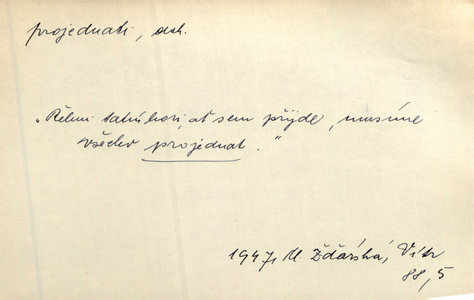 projednati, dok.
„Řekni tatínkovi, ať sem přijde, musíme
všecko projednat."
1947, M. Žďárská, Vítr
88, 5